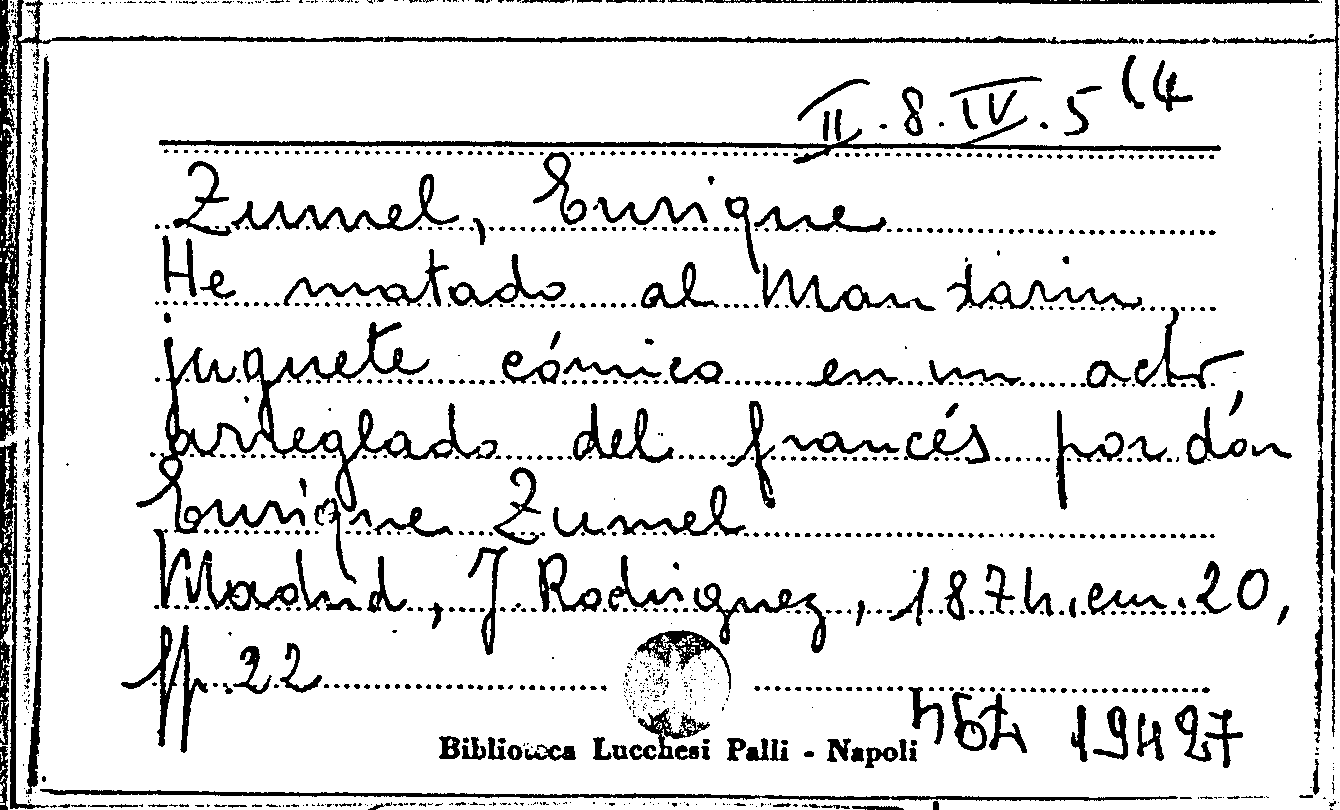 II.8.IV.5(4
Zumel, Enrique
He matado al Mandarin,
juguete cómico en un acto,
arreglado del francés por dón
Enrique Zumel
Madrid, J Rodriguez, 1874, cm.20,
pp.22
19427
Biblioteca Lucchesi Palli - Napoli